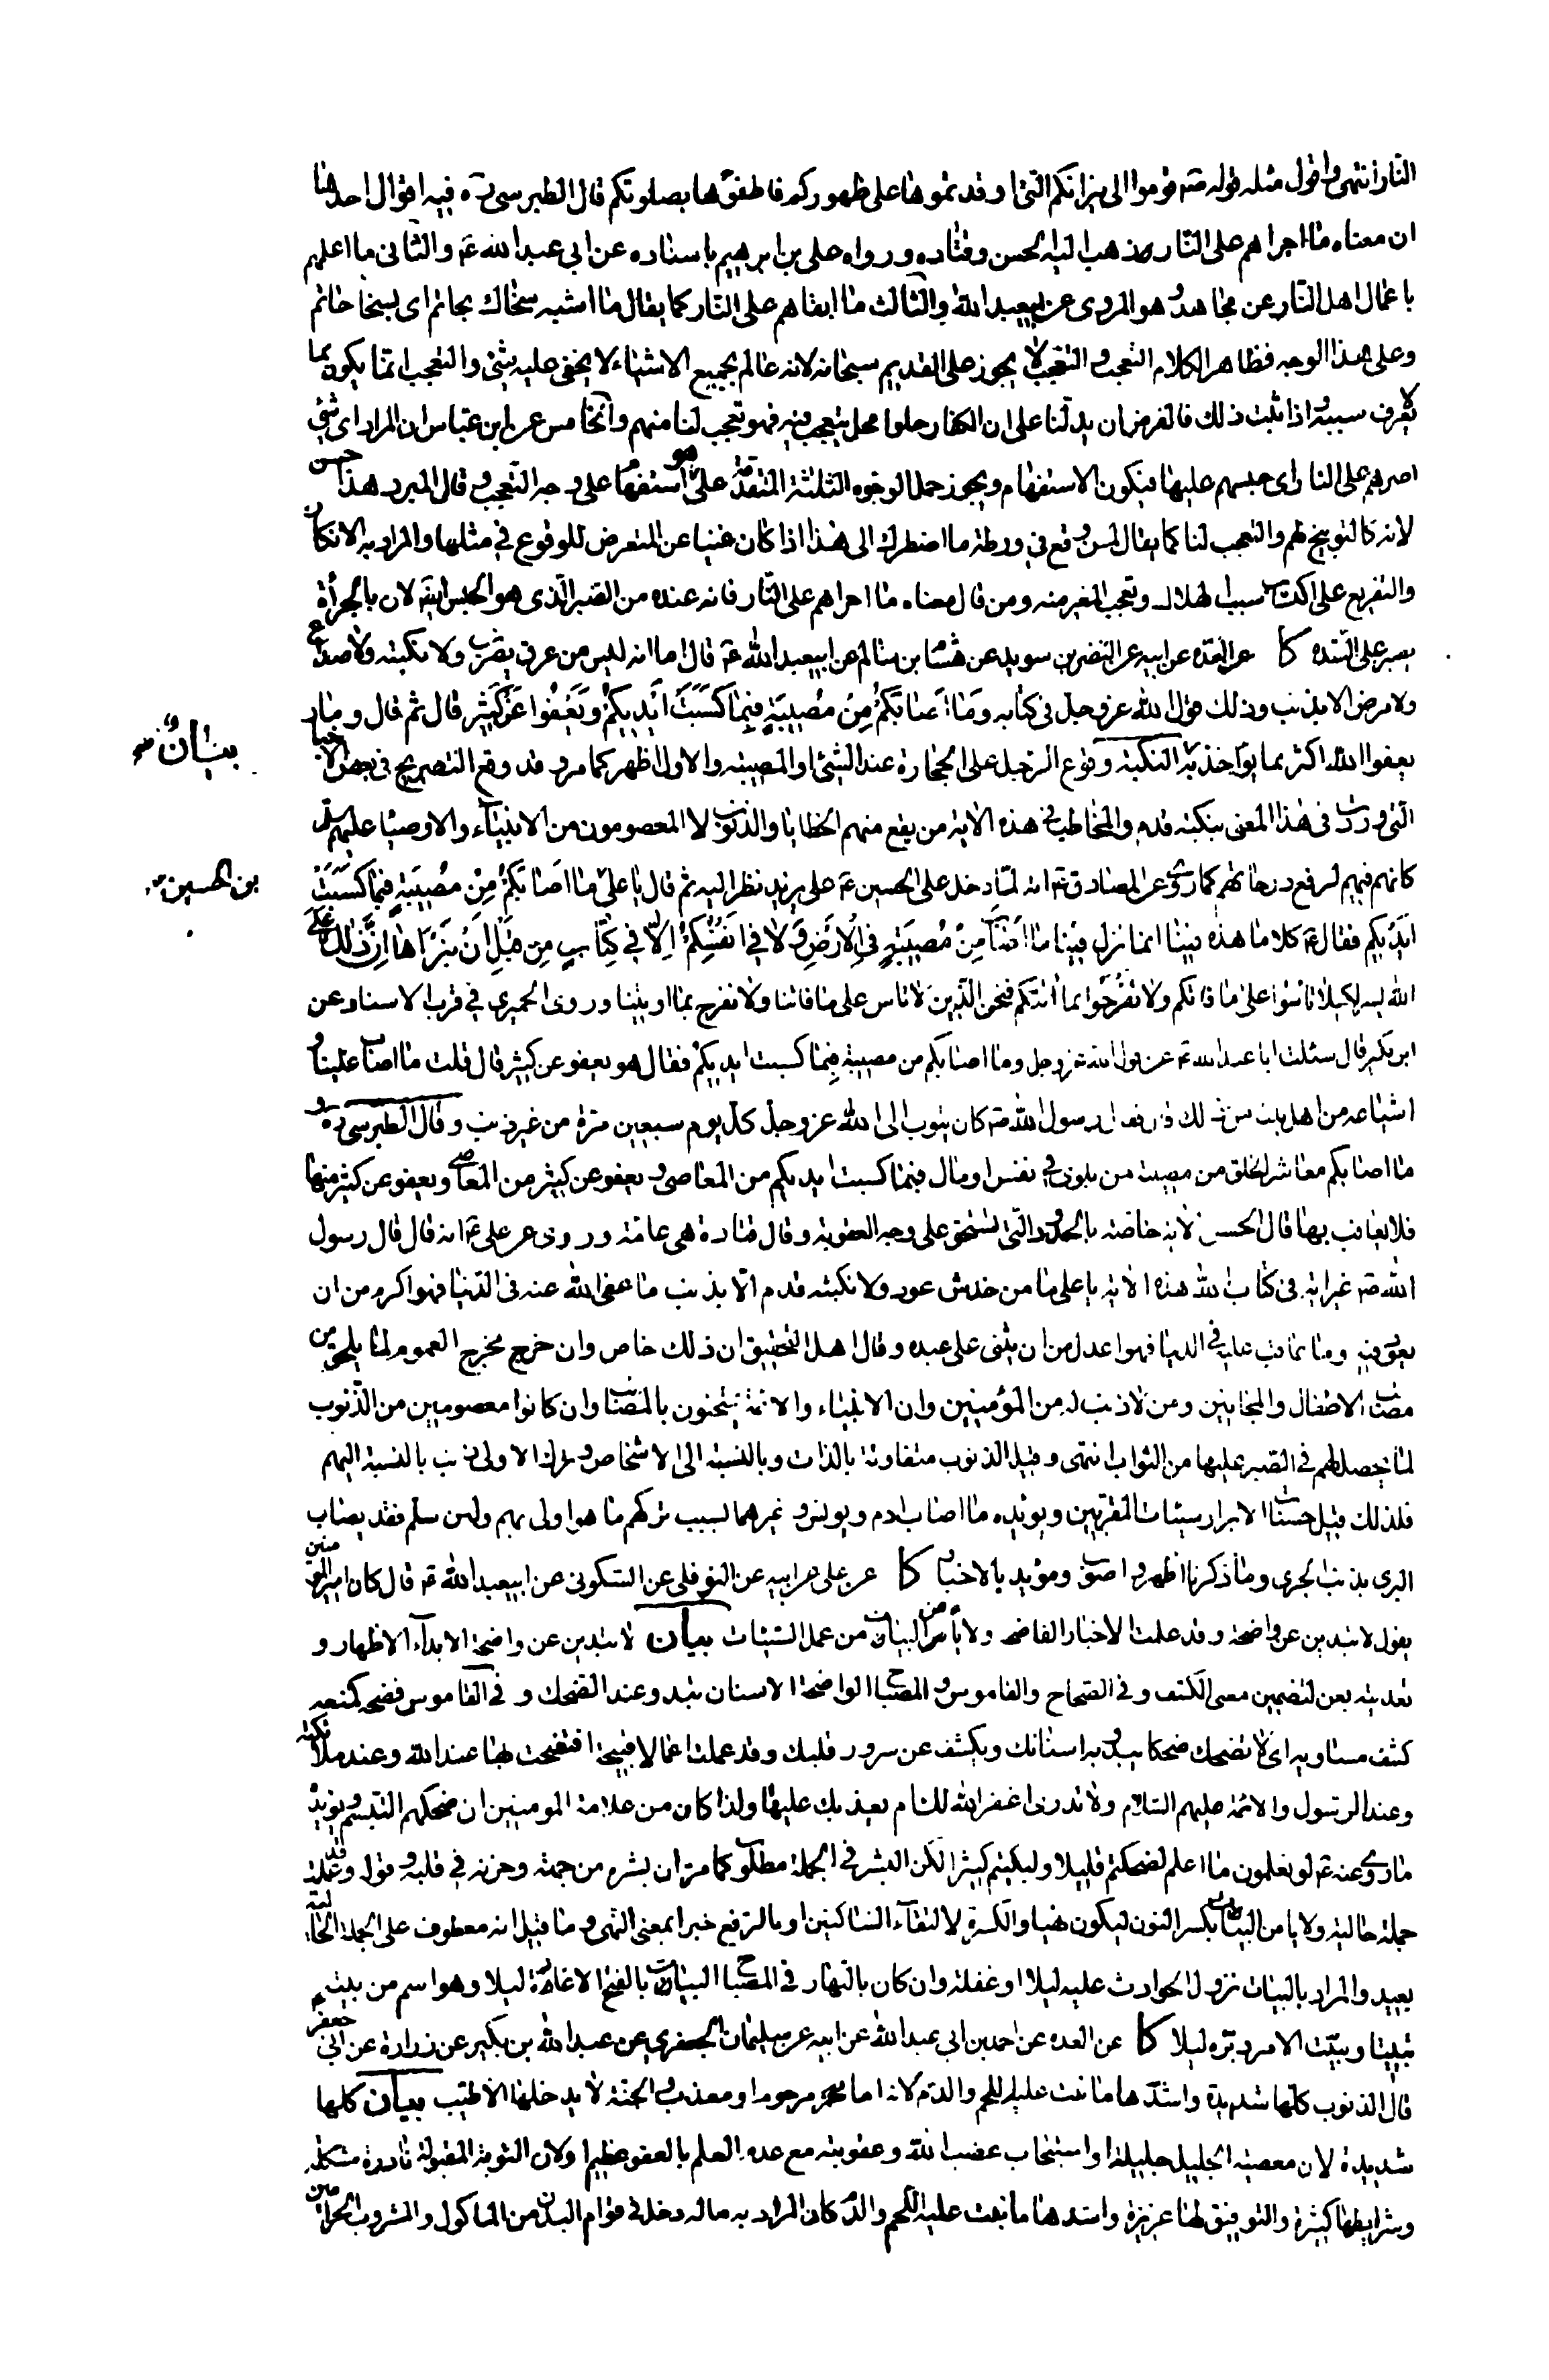 النار انتهى واقول مثله قوله صم قوموا الى نيرانكم التى اوقدتموها على ظهوركم فاطفؤها بصلوتكم قال الطبرسى ره فيه اقوال احدها
ان معناه ما اجراهم على النار ذهب اليه الحسن وقتاده ورواه على بن ابرهيم باسناده عن ابي عبد الله ع والثانى ما اعلمهم
باعمال اهل النار عن مجاهد وهو المروى عن ابيعبد الله والثالث ما ابقاهم على النار كما يقال ما اشبه سخاك بحاتم اى بسخا حاتم
وعلى هذا الوجه فظاهر الكلام التعجب والتعجب لا يجوز على القديم سبحانه لانه عالم بجميع الاشياء لا يخفى عليه شئ والتعجب انما يكون بما
لا يعرف سببه اذا ثبت ذلك فالغرض ان يدلنا على ان الكفار حلوا محل يتعجب منه فهو تعجب لنا منهم والخامس عن ابن عباس ان المراد اى شئ
اصبرهم على النار اى حبسهم عليها فيكون الاستفهام ويجوز حمل الوجوه الثلثة المتقدمة على هو استفهام على وجه التعجب وقال المبرد هذا حسن
لانه كالتوبيخ لهم والتعجب لنا كما يقال لمن وقع في ورطة ما اضطرك الى هذا اذا كان غنيا عن التعرض للوقوع في مثلها والمراد به الانكار
والتقريع على اكتساب سبب الهلاك وتعجب الغير منه ومن قال معناه ما اجراهم على النار فانه عنده من الصبر الذى هو الحبس ايضا لان بالجرأة
يصبر على الشدة كا عن العده عن ابيه عن النضر بن سويد عن هشام بن سالم عن ابيعبد الله ع قال اما انه ليس من عرق يضرب ولا نكبة ولا صداع
ولا مرض الا بذنب وذلك قول الله عز وجل في كتابه وَمَا اَصَابَكُمْ مِنْ مُصِيبَةٍ فَبِمَا كَسَبَتْ اَيْدِيكُمْ وَيَعْفُوا عَنْ كَثِيرٍ قال ثم قال وما
بيان
يعفوا الله اكثر مما يؤاخذ به النكبة وقوع الرجل على الحجارة عند المشى او المصيبة والاول اظهر كما مر وقد وقع التصريح في بعض الاخبار
التى وردت في هذا المعنى بنكبة قدم والمخاطب في هذه الاية من يقع منهم الخطايا والذنوب لا المعصومون من الانبياء والاوصياء عليهم السلم
بن الحسين
كانهم فيهم لرفع درجاتهم كما روى عن الصادق ع انه لما دخل على الحسين ع على يزيد نظر اليه ثم قال يا على ما اصابكم من مصيبة فبما كسبت
ايديكم فقال ع كلا ما هذه فينا انما نزل فينا ما اَصَابَ مِنْ مُصِيبَةٍ فِى الْاَرْضِ وَلا في اَنْفُسِكُمْ اِلّا في كِتَابٍ مِنْ قَبْلِ اَنْ نَبْرَاَهَا اِنَّ ذلِكَ عَلَى
الله يسير لكيلا تاسوا على ما فاتكم ولا تفرحوا بما آتيكم فنحن الذين لا ناس على ما فاتنا ولا نفرح بما اوتينا وروى الحميري في قرب الاسناد عن
ابن بكير قال سئلت ابا عبد الله ع عن قول الله عز وجل وما اصابكم من مصيبة فبما كسبت ايديكم فقال هو يعفو عن كثير قال قلت ما اصاب عليا و
اشياعه من اهل بيته من ذلك قال فقال ان رسول الله صم كان يتوب الى الله عز وجل كل يوم سبعين مرة من غير ذنب وقال الطبرسى ره و
ما اصابكم معاشر الخلق من مصيبة من بلوى في نفس او مال فبما كسبت ايديكم من المعاصى ويعفو عن كثير من المعاصى ويعفو عن كثير منها
فلا يعاقب بها قال الحسن الاية خاصة بالحدود التى تستحق على وجه العقوبة وقال قتادة هي عامة وروى عن على ع انه قال قال رسول
الله صم خير اية في كتاب الله هذه الاية يا على ما من خدش عود ولا نكبة قدم الا بذنب ما عفى الله عنه في الدنيا فهو اكرم من ان
يعود فيه وما عاقب عليه في الدنيا فهو اعدل من ان يثنى على عبده وقال اهل التحقيق ان ذلك خاص وان خرج مخرج العموم لما يلحق من
مصائب الاطفال والمجانين ومن لا ذنب له من المؤمنين وان الانبياء والائمة يمتحنون بالمصائب وان كانوا معصومين من الذنوب
لما يحصل لهم في الصبر عليها من الثواب انتهى وقيل الذنوب متفاوتة بالذات وبالنسبة الى الاشخاص وترك الاولى ذنب بالنسبة اليهم
فلذلك قيل حسنات الابرار سيئات المقربين ويؤيده ما اصاب ادم ويونس وغيرهما بسبب تركهم ما هو اولى بهم ولئن سلم فقد يصاب
البرى بذنب الجرى وما ذكرنا اظهر واصوب ومؤيد بالاخبار كا عن على عن ابيه عن النوفلى عن السكونى عن ابيعبد الله ع قال كان امير المؤمنين
يقول لا تبدين عن واضحة وقد عملت الاخبار الفاضحة ولا يأمن البيات من عمل السيئات بيان لا تبدين عن واضحة الابداء الاظهار و
تعديته بعن لتضمين معنى الكشف وفي الصحاح والقاموس والمصباح الواضحة الاسنان تبدو عند الضحك وفي القاموس فضحه كمنعه
كشف مساويه اى لا تضحك ضحكا يبدو به اسنانك ويكشف عن سرور قلبك وقد عملت اعمالا قبيحة افتضحت بها عند الله وعند ملائكته
وعند الرسول والائمة عليهم السلام ولا تدرى اغفر الله لك ام يعذبك عليها ولذا كان من علامة المومنين ان ضحكهم التبسم ويؤيده
ما روى عنه ع لو تعلمون ما اعلم لضحكتم قليلا ولبكيتم كثيرا لكن البشر في الجملة مطلوب كما مر ان بشره من جهته وحزنه في قلبه وقوله وقد عملت
جملة حالية ولا يامن البيات بكسر النون ليكون نهيا والكسرة لالتقاء الساكنين او بالرفع خبرا بمعنى النهى وما قيل انه معطوف على الجملة الحالية
بعيد والمراد بالبيات نزول الحوادث عليه ليلا او غفلة وان كان بالنهار في المصباح البيات بالفتح الاغارة ليلا وهو اسم من بيته
تبييتا وبيّت الامر دبّره ليلا كا عن العده عن احمد بن ابي عبد الله عن ابيه عن سليمان الجعفري عن عبد الله بن بكير عن زرارة عن ابي جعفر
قال الذنوب كلها شديدة واشدها ما نبت عليه اللحم والدم لانه اما مرحوم او معذب والجنة لا يدخلها الا طيب بيان كلها
شديدة لان معصية الجليل جليلة او استيجاب غضب الله وعقوبته مع عدم العلم بالعفو عظيم او لان التوبة المقبولة نادرة مشكلة
وشرايطها كثيرة والتوفيق لها عزيزة واشدها ما نبت عليه اللحم والدم كان المراد به ما له دخل في قوام البدن من الماكول والمشروب الحرامين